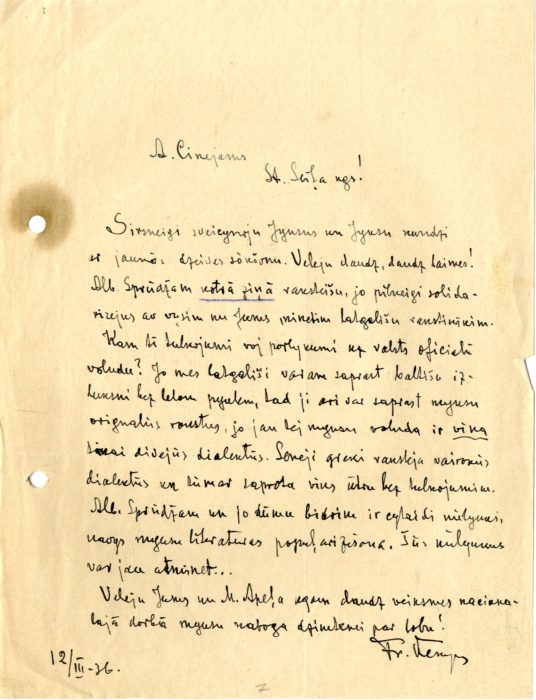 A. Cinejams
St. Seiļa kgs!
Sirsneigi sveicynoju Jyusus un Jyusu kundzi
ar jaunōs dzeives sōkšonu. Veleju daudz, daudz laimes!
Alb. Sprūdžam kotrā ziņā rakstēšu, jo pilneigi solida-
rizejūs ar vysim nu Jums minātim latgalīšu rakstinīkim.
Kam ti tulkojumi voj pōrlykumi uz valsts oficialū
volūdu? Jo mes latgalīši varam saprast baltīšu iz-
lūksni bez lelom pyulem, tad ji ari var saprast myusu
originalūs rokstus, jo jau tei myusu volūda ir vina
tikai divejūs dialektūs. Senejī greki raksteja vairokūs
dialektūs un tūmār saprota vins ūtru bez tulkojumim.
Alb. Sprūdžam un jo dūmu bidrim ir cytaidi nūlyuki,
navys myusu literaturas popularizēšona. Jūs nūlyukus
var jau atminēt...
Veleju Jums un M. Apeļa kgam daudz veiksmes naciona-
lajā dorbā myusu natōga dzimtinei par lobu!
Fr. Kemps
12/III-36.
7